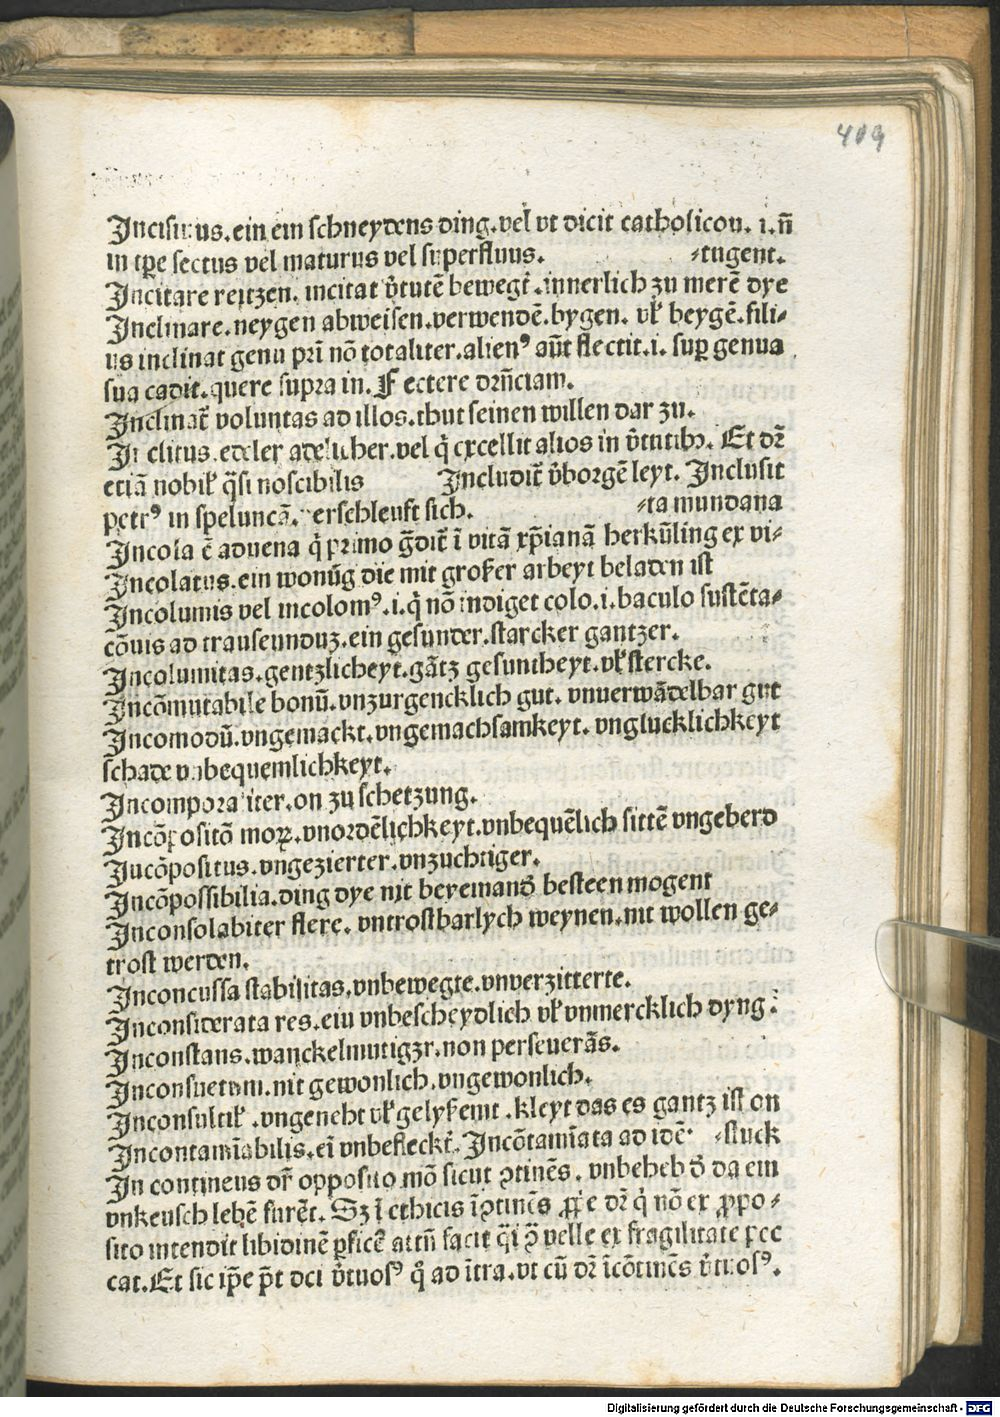 409
Incisiuus. ein ein schneydens ding. vel vt dicit catholicon. i. nō
in tꝑe sectus vel maturus vel superfluus. ⸗tugent.
Incitare reitzen. incitat v̓tutē bewegt̓ .innerlich zu merē dye
Inclinare. neygen abweisen. verwendē. bygen. vł beygē. fili⸗
us inclinat genu pr̄i nō totaliter. alienꝰ aūt flectit. i. suꝑ genua
sua cadit. quere supra in. F ectere drn̄ciam.
Inclinat̄ voluntas ad illos. thut seinen willen dar zu.
In clitus. edeler adelicher. vel q̓ excellit alios in v̓tutibꝫ. Et dr̄
etiā nobił q̄si noscibilis Includit̄ v̓borgē leyt. Inclusit
petrꝰ in speluncā. erschleust sich. ⸗ta mundana
Incola ē aduena q̓ primo ḡdit̄ ī vitā xp̄ianā herkūling ex vi⸗
Incolatus. ein wonūg die mit groſer arbeyt beladen ist
Incolumis vel incolomꝰ. i. q̓ nō indiget colo. i. baculo sustēta⸗
cōnis ad transeunduꝫ. ein gesunder. starcker gantzer.
Incolumitas. gentzlicheyt. gātz gesuntheyt. vł stercke.
Incōmutabile bonū. vnzurgencklich gut. vnuerwādelbar gut
Incomodū. vngemackt. vngemachsamkeyt. vnglucklichkeyt
schade vnbequemlichkeyt.
Incompora iter. on zu schetzung.
Incōpositō moꝝ. vnordēlichkeyt. vnbequēlich sittē vngeberd
Incōpositus. vngezierter. vnzuchtiger.
Incōpossibilia. ding dye nit beyemand̓ besteen mogent
Inconsolabiter flere. vntrostbarlych weynen. nit wollen ge⸗
trost werden.
Inconcussa stabilitas. vnbewegte. vnverzitterte.
Inconsiderata res. ein vnbescheydlich vł vnmercklich dyng
Inconstans. wanckelmutigzr. non perseuerās.
Inconsuetum. nit gewonlich. vngewonlich.
Inconsultił . vngeneht vł . kleyt das es gantz ist on
Incontamīabilis. eī vnbefleckt̓. Incōtamīata ad idē ⸗stuck
In contineus dr̄ opposito mō sicut ꝯtinēs. vnbeheb d̓ da ein
vnkeusch lebē furēt. Sꝫ ī ethicis īꝯtinēs ꝓ e dr̄ q̓ nō ex ꝓpo⸗
sito intendit libidinē ꝑficē attn̄ facit velle ex fragilitate pec
cat. Et sic ip̄e p̄t dci v̓tuosꝰ ad ītra. vt cū dr̄ īcōtinēs v̓tuosꝰ.
Digitalisierung gefördert durch die Deutsche Forschungsgemeinschaft - DFG